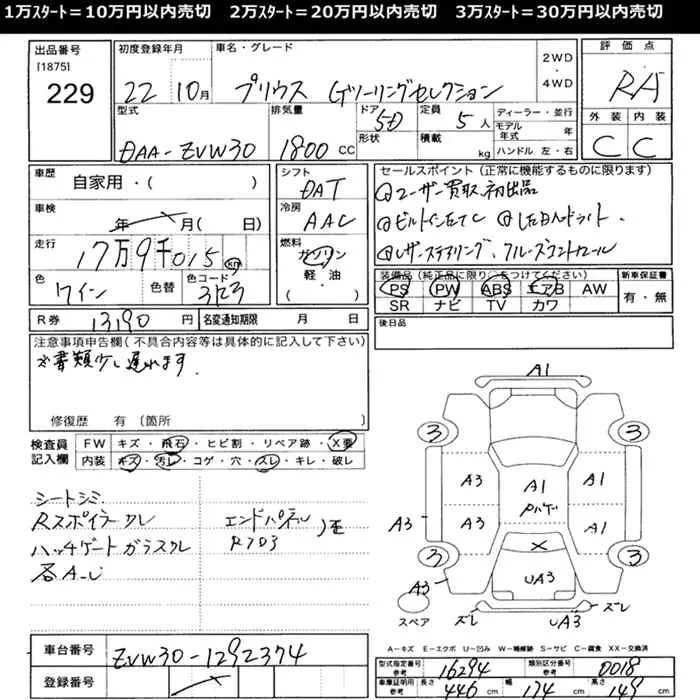 1万ｽﾀｰﾄ＝10万円以内売切　2万ｽﾀｰﾄ＝20万円以内売切　3万ｽﾀｰﾄ＝30万円以内売切
出品番号
[1875]
229
初度登録年月
22 10月
車名・グレード
プリウス Gツーリングセレクション
2WD
・
4WD
評価点
RA5
型式
DAA-ZVW30
排気量
1800 CC
ドア
5D
形状
定員
5人
積載
kg
ディーラー・並行
モデル年式 年
ハンドル 左・右
外装 内装
C C
車歴
自家用・( )
車検
年 月( 日)
走行
17万9千015 km
色
ワイン
色替
色コード
3R3
シフト
DAT
冷房
AAC
燃料
ガソリン
軽・油
( )
セールスポイント（正常に機能するものに限ります）
@ユーザー買取初出品
@ビルトインETC
@レザーステアリング、クルーズコントロール
装備品（純正品に限り○をつけてください）
PS PW ABS エアB AW
SR ナビ TV カワ
新車保証書
有・無
R券 13190 円
名変通知期限 月 日
後日品
注意事項申告欄（不具合内容等は具体的に記入して下さい）
※書類少し遅れます.
修復歴 有（箇所
検査員
記入欄
FW キズ・飛石・ヒビ割・リペア跡・X要
内装 キズ・汚レ・コゲ・穴・スレ・キレ・破レ
シートシミ
Rスポイラークレ
ハッチゲートガラスクレ
各A_U
エンドパネル
Rフロ
歪
A1
3 3
A3 A1 A1
Pハゲ
A3 A3 A1
3 3
X
A3 UA3
スペア
ズレ UA3 ズレ
A－キズ E－エクボ U－凹み W－補修跡 S－サビ C－腐食 XX－交換済
車台番号
ZVW30-1292374
登録番号
型式指定番号
参考
16294
類別区分番号
参考
0018
車庫証明用
参考
長さ
446 cm
幅
174 cm
高さ
149 cm